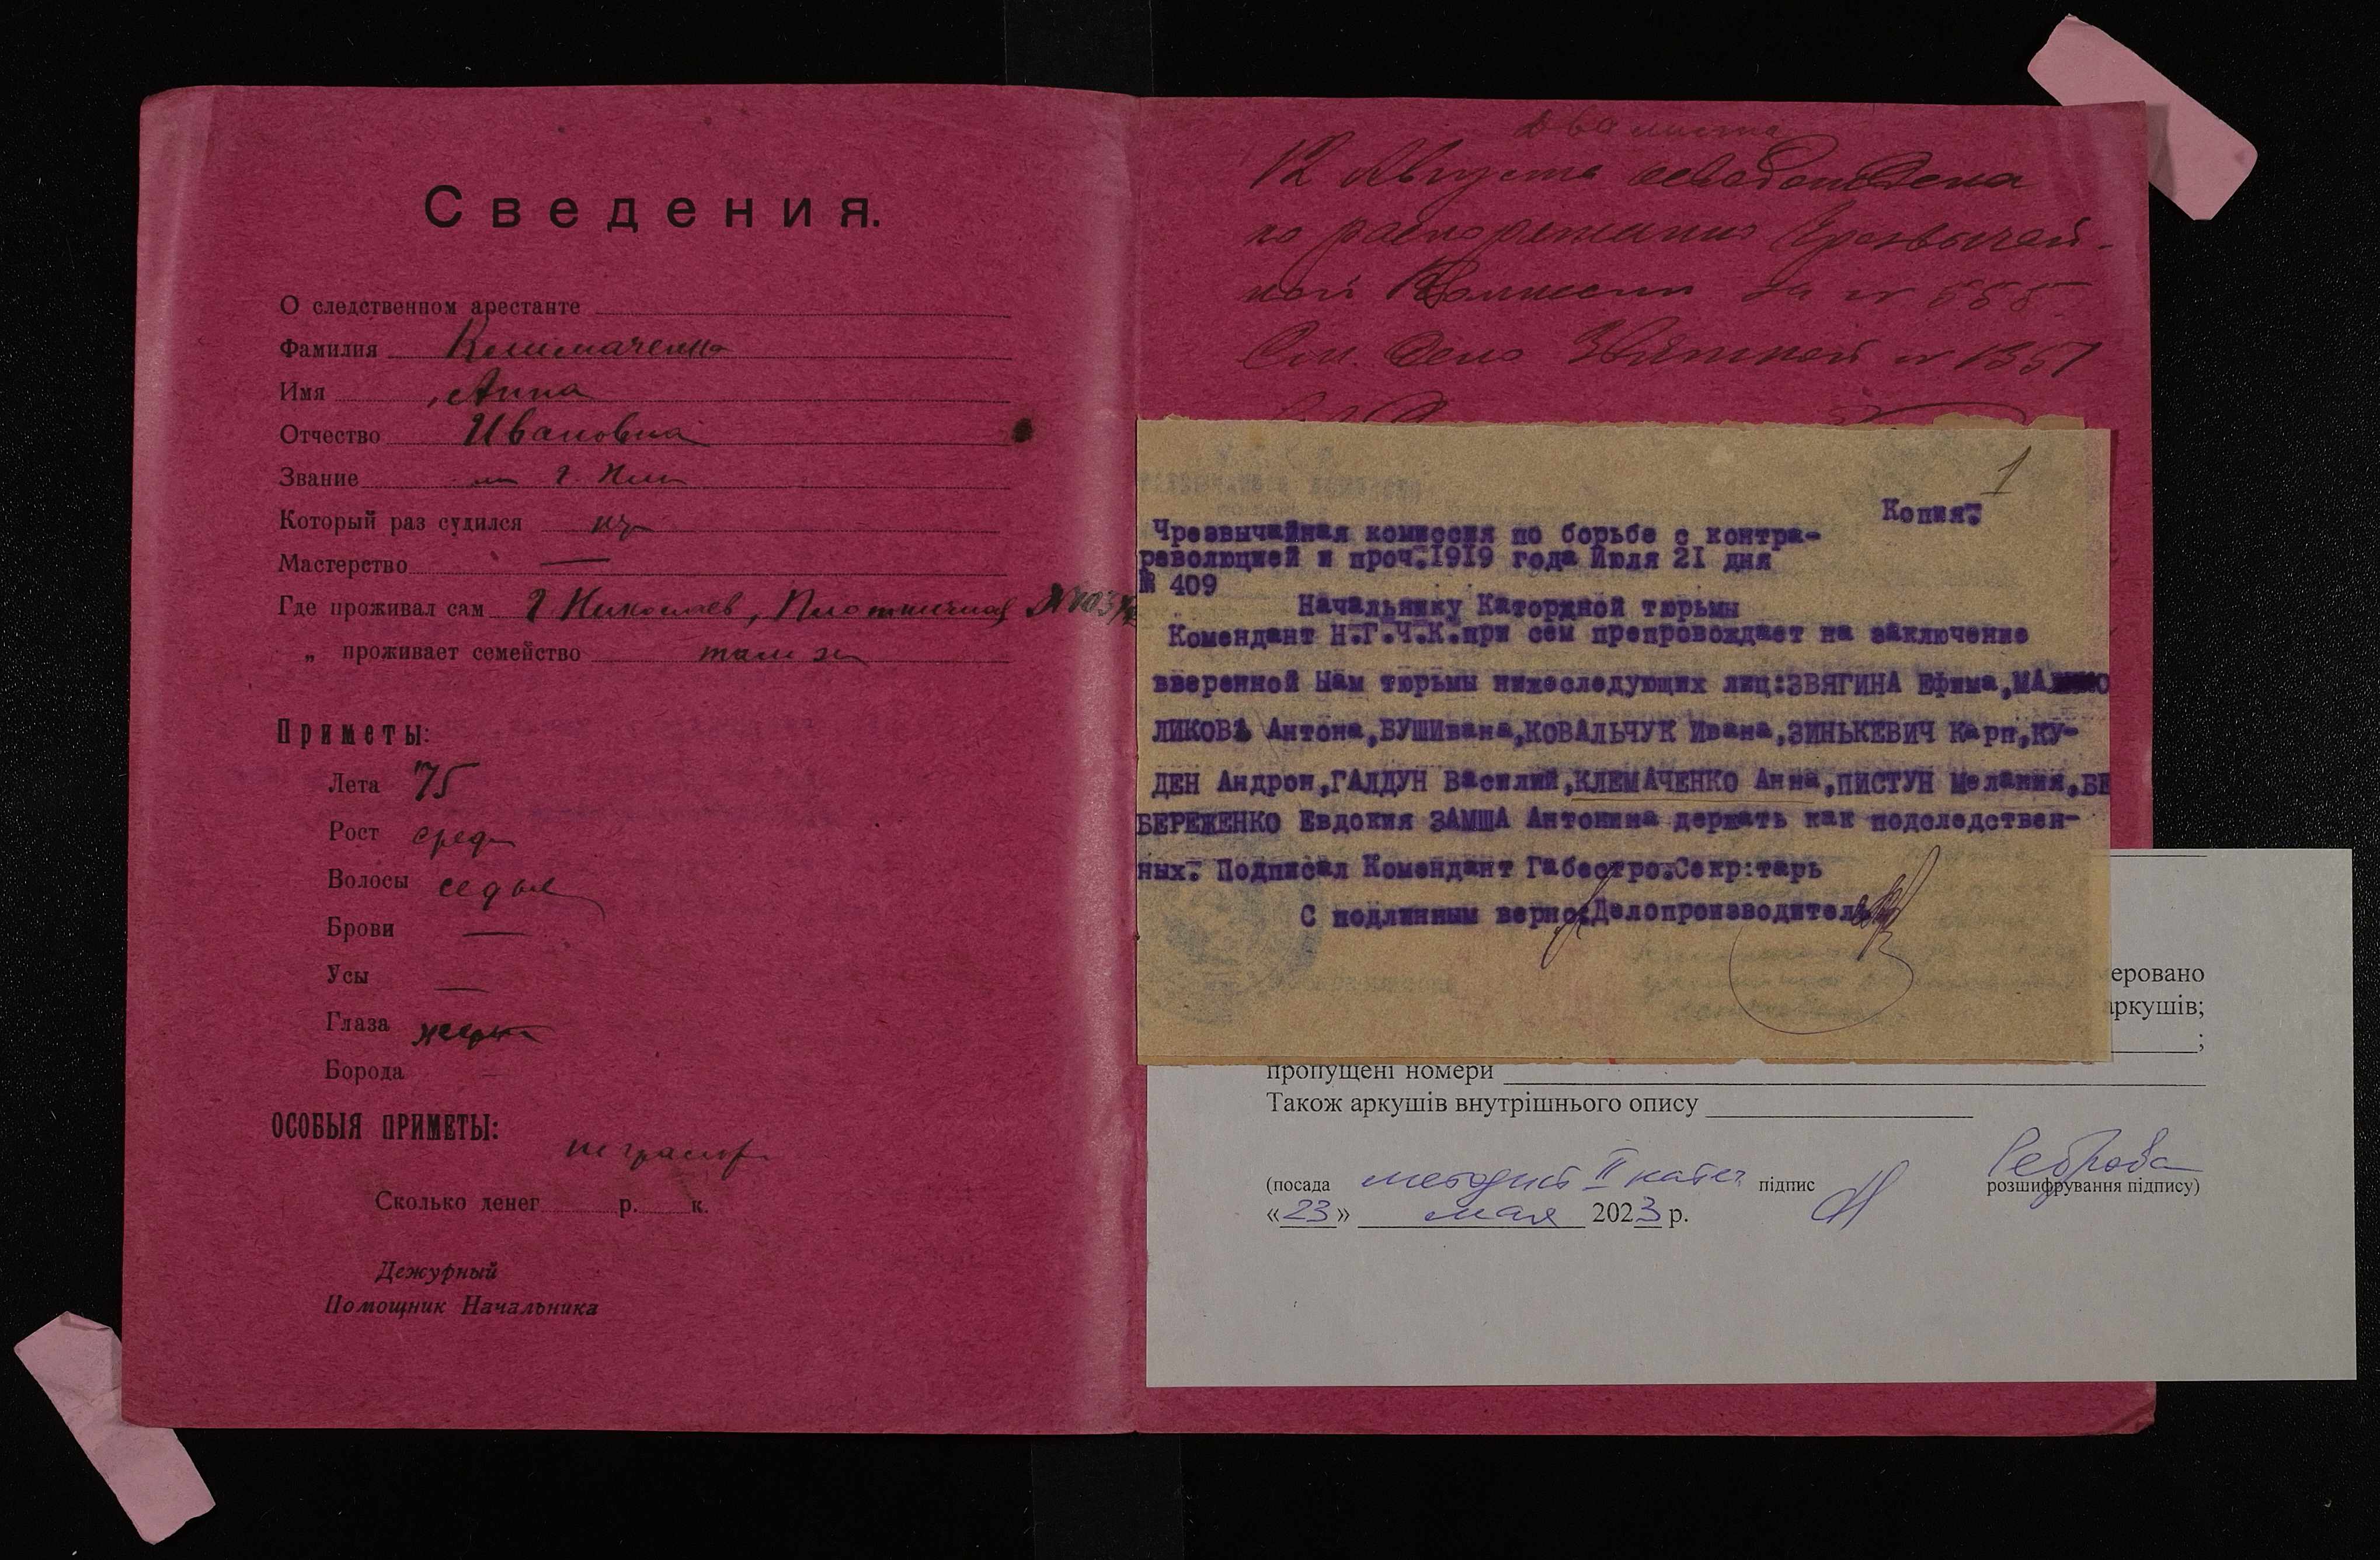 Сведения.
О следственном арестанте
Фамилия Климаченко
Имя Анна
Отчество Ивановна
Звание г.
Который раз судился
Мастерство —
Где проживал сам г. Николаев, Плотничная №103
„ проживает семейство там же
Приметы:
Лета 75
Рост средн
Волосы седые
Брови —
Усы —
Глаза
Борода –
ОСОБЫЯ ПРИМЕТЫ:
Сколько денег р. к.
Дежурный
Помощник Начальника
два листа
12 Августа освобождена
по распоряжению Чрезвычай-
ной Комиссии за №
См. дело № 1357
1
Копия.
Чрезвычайная комиссия по борьбе с контра-
революцией и проч. 1919 года Июля 21 дня
№ 409
Начальнику Каторжной тюрьмы
Комендант Н.Г.Ч.К. при сем препровождает на заключение
вверенной Вам тюрьмы нижеследующих лиц: ЗВЯГИНА Ефима, МА
ЛИКОВА Антона, БУШИвана, КОВАЛЬЧУК Ивана, ЗИНЬКЕВИЧ Карп, КУ-
ДЕН Андрон, ГАЛДУН Василий, КЛЕМАЧЕНКО Анна, ПИСТУН Мелания, БЕ
БЕРЕЖЕНКО Евдокия ЗАМША Антонина держать как подследствен-
ных. Подписал Комендант Габестро. Секр:тарь
С подлинным верно: Делопроизводитель
еровано
аркушів;
;
пропущені номери
Також аркушів внутрішнього опису
(посада методист II катег підпис Реброва
розшифрування підпису)
«23» мая 2023 р.